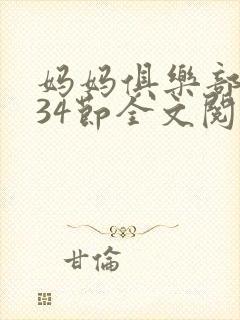 妈妈俱樂部
34節全文閱
甘倫